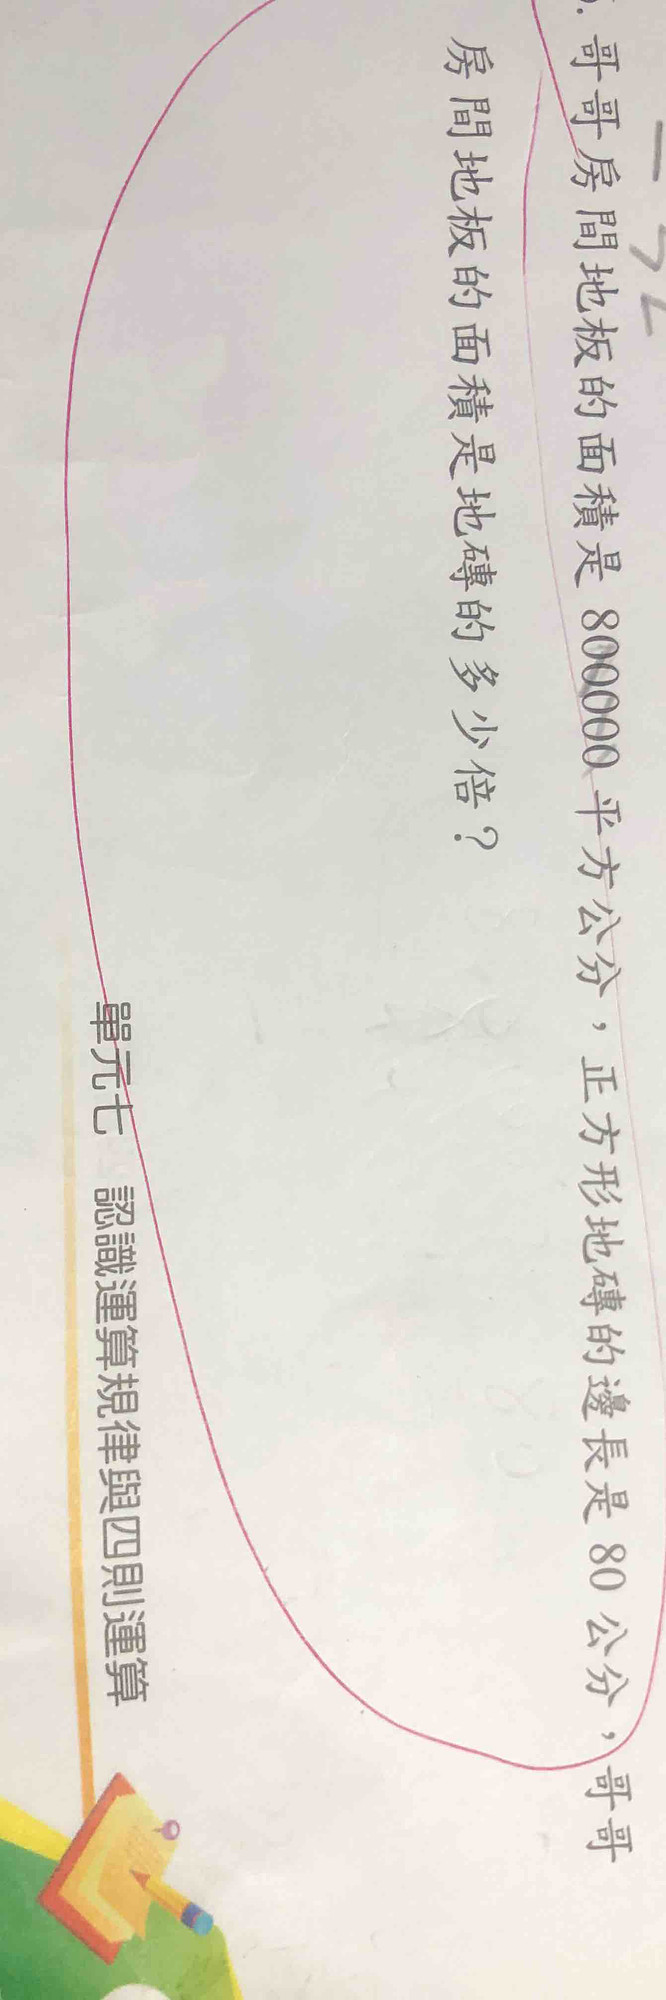 哥哥房間地板的面積是 800000 平方公分，正方形地磚的邊長是 80 公分，哥哥
房間地板的面積是地磚的多少倍？
單元七 認識運算規律與四則運算